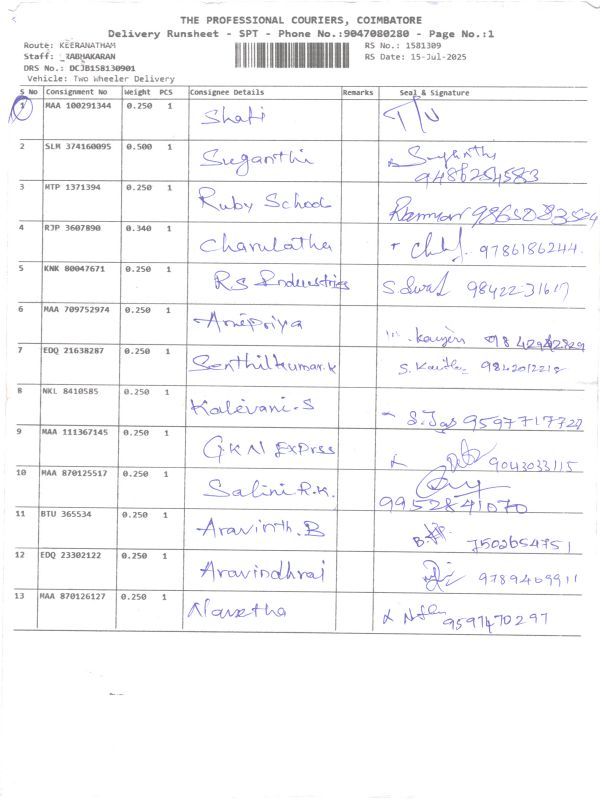 THE PROFESSIONAL COURIERS, COIMBATORE
Delivery Runsheet - SPT - Phone No.:9047080280 - Page No.:1
Route: KEERANATHAM RS No.: 1581309
Staff: RABHAKARAN RS Date: 15-Jul-2025
DRS No.: DCJB158130901
Vehicle: Two Wheeler Delivery
S No Consignment No Weight PCS Consignee Details Remarks Seal & Signature
1 MAA 100291344 0.250 1 Shati
2 SLM 374160095 0.500 1 Suganthi Suganthi
9486284583
3 MTP 1371394 0.250 1 Ruby School
4 RJP 3607890 0.340 1 Charulatha 9786186244.
5 KNK 80047671 0.250 1 RS Industries 98422-31617
6 MAA 709752974 0.250 1
7 EDQ 21638287 0.250 1 Senthilkumar.k 9842012218
8 NKL 8410585 0.250 1 Kalevani.S 9597717727
9 MAA 111367145 0.250 1 GKN Exprss 9043033115
10 MAA 870125517 0.250 1 Salini R.K.
9952841070
11 BTU 365534 0.250 1 Aravinth.B 7502654751
12 EDQ 23302122 0.250 1 Aravindhraj 9789409911
13 MAA 870126127 0.250 1 Navetha 9597470297